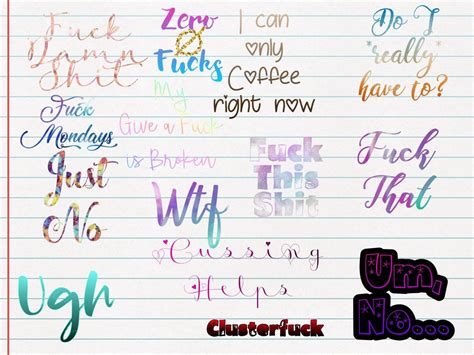 Fuck
Damn
Shit
Zero
Ø
Fucks
I can
only
Coffee
right now
Do I
*really*
have to?
Fuck
Mondays
My
Give a Fuck
is Broken
Just
No
Wtf
Fuck
This
Shit
Fuck
That
Cussing
Helps
Ugh
Clusterfuck
Um,
No...